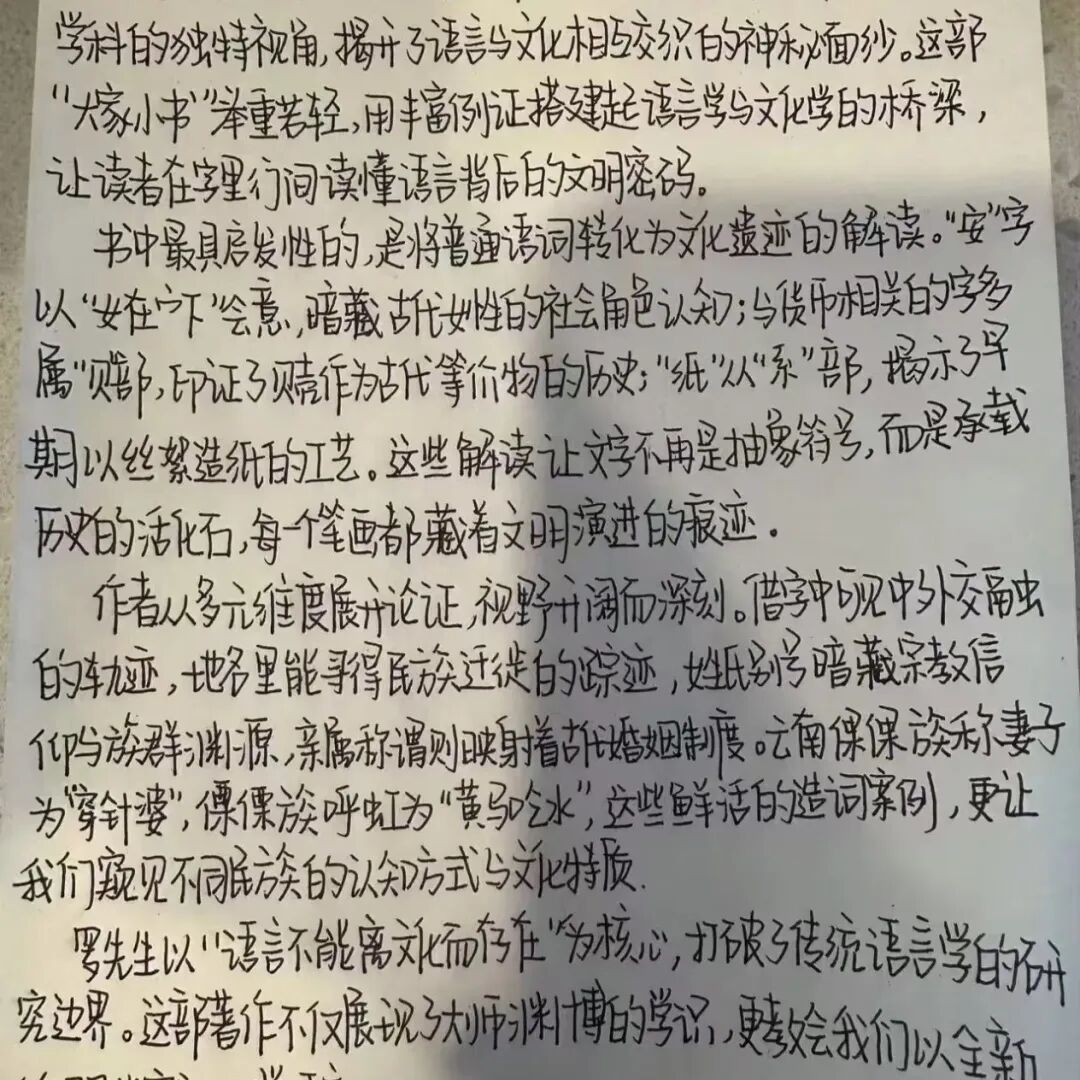 学科的独特视角,揭开了语言与文化相互交织的神秘面纱。这部
"大家小书"举重若轻,用丰富例证搭建起语言学与文化学的桥梁,
让读者在字里行间读懂语言背后的文明密码。
书中最具启发性的,是将普通语词转化为文化遗迹的解读。"安"字
以"女在宀下"会意,暗藏古代女性的社会角色认知;与货币相关的字多
属"贝"部,印证了贝壳作为古代等价物的历史;"纸"从"系"部,揭示了早
期以丝絮造纸的工艺。这些解读让文字不再是抽象符号,而是承载
历史的活化石,每一个笔画都藏着文明演进的痕迹.
作者从多元维度展开论证,视野开阔而深刻。借字中可见中外交融
的轨迹,地名里能寻得民族迁徙的踪迹,姓氏别号暗藏宗教信
仰与族群渊源,亲属称谓则映射着古代婚姻制度。云南倮倮族称妻子
为"穿针婆",傈傈族呼虹为"黄马吃水",这些鲜活的造词案例,更让
我们窥见不同民族的认知方式与文化特质.
罗先生以"语言不能离文化而存在"为核心,打破了传统语言学的研
究边界。这部著作不仅展现了大师渊博的学识,更教会我们以全新